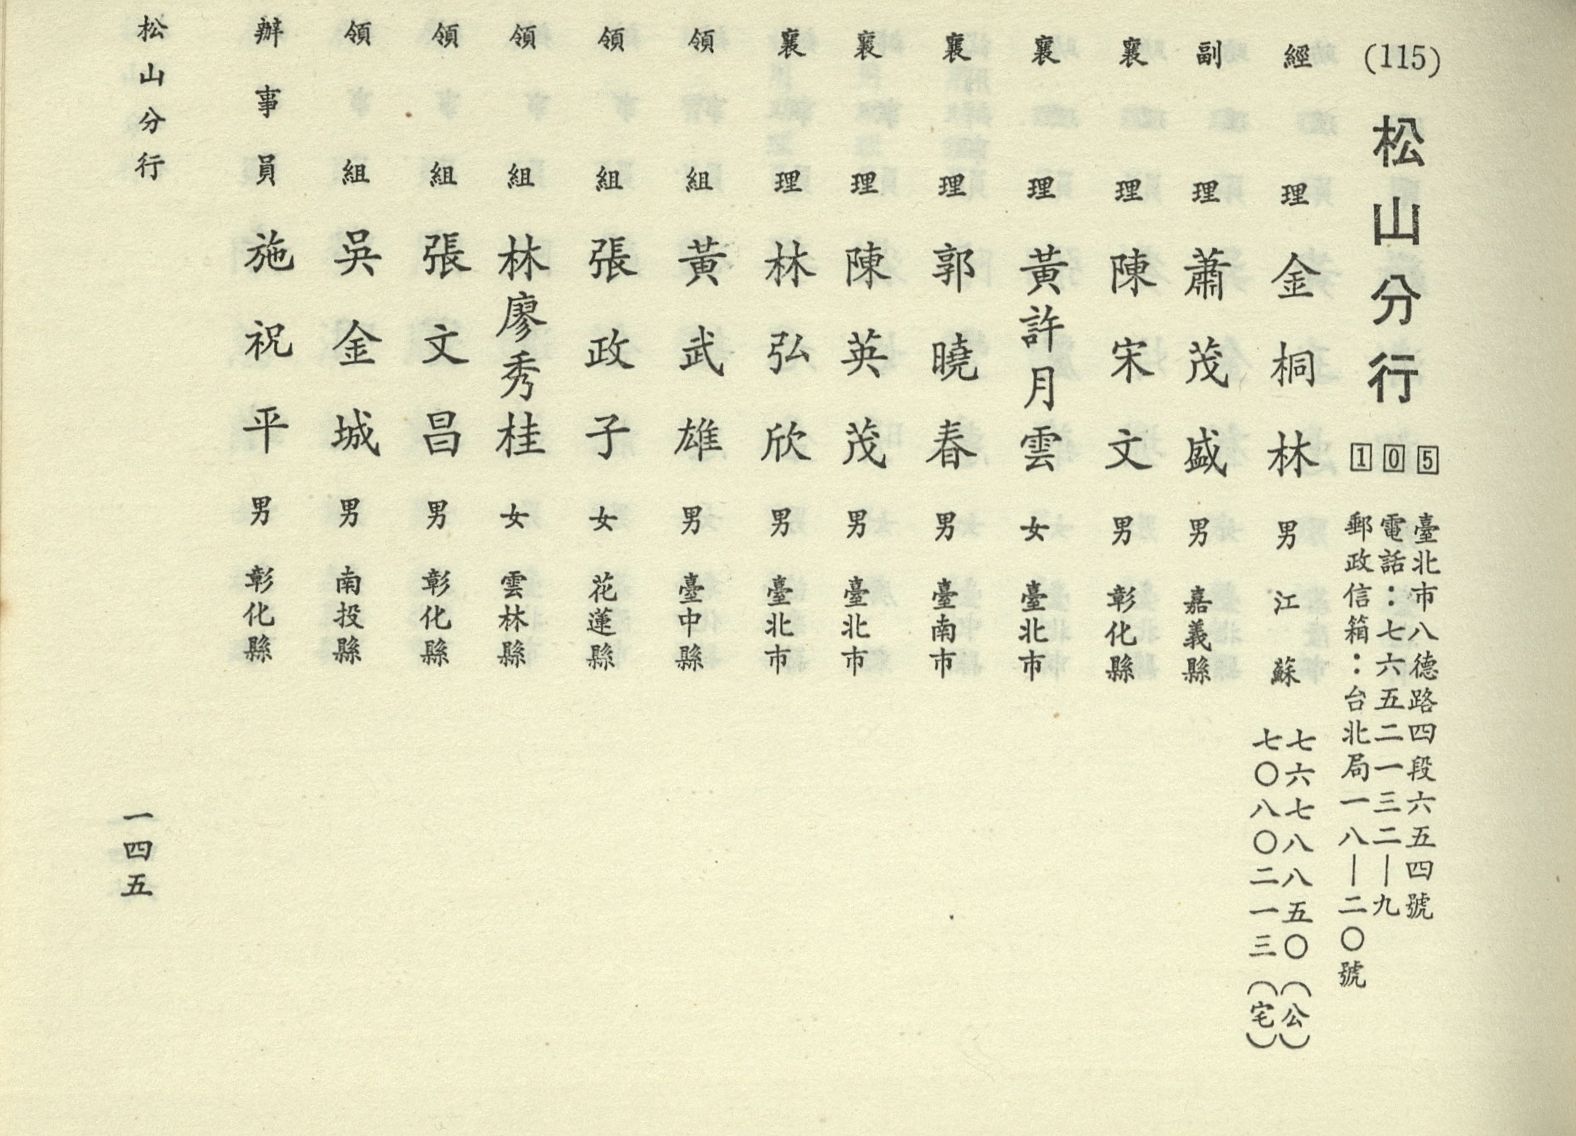 (115)
松山分行
105
臺北市八德路四段六五四號
電話：七六五二一三二—九
郵政信箱：台北局一八—二〇號
經理 金桐林 男 江蘇
七六七八八五〇(公)
七〇八〇二一三(宅)
副理 蕭茂盛 男 嘉義縣
襄理 陳宋文 男 彰化縣
襄理 黃許月雲 女 臺北市
襄理 郭曉春 男 臺南市
襄理 陳英茂 男 臺北市
襄理 林弘欣 男 臺北市
領組 黃武雄 男 臺中縣
領組 張政子 女 花蓮縣
領組 林廖秀桂 女 雲林縣
領組 張文昌 男 彰化縣
領組 吳金城 男 南投縣
辦事員 施祝平 男 彰化縣
松山分行
一四五